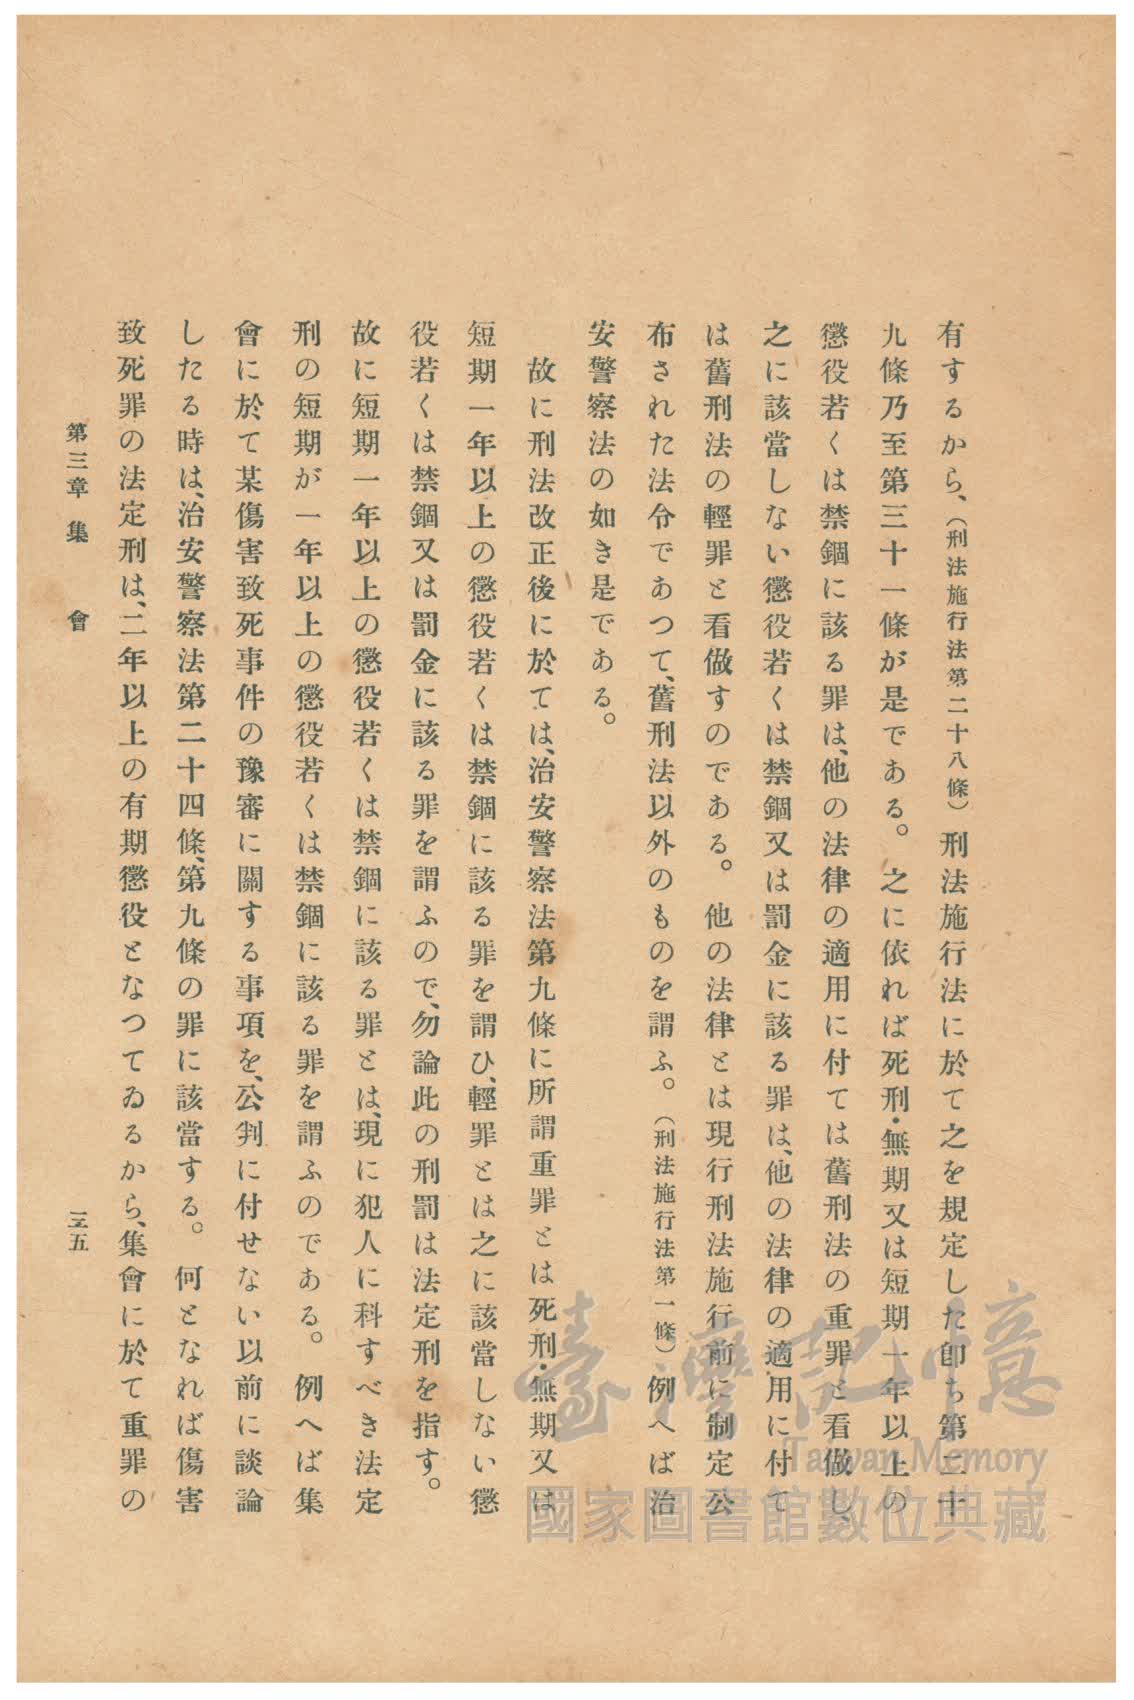 有するから、（刑法施行法第二十八條）刑法施行法に於て之を規定した卽ち第二十
九條乃至第三十一條が是である。之に依れば死刑・無期又は短期一年以上の
懲役若くは禁錮に該る罪は、他の法律の適用に付ては舊刑法の重罪と看做し、
之に該當しない懲役若くは禁錮又は罰金に該る罪は、他の法律の適用に付て
は舊刑法の輕罪と看做すのである。他の法律とは現行刑法施行前に制定公
布された法令であつて、舊刑法以外のものを謂ふ。（刑法施行法第一條）例へば治
安警察法の如き是である。
故に刑法改正後に於ては、治安警察法第九條に所謂重罪とは死刑・無期又は
短期一年以上の懲役若くは禁錮に該る罪を謂ひ、輕罪とは之に該當しない懲
役若くは禁錮又は罰金に該る罪を謂ふので、勿論此の刑罰は法定刑を指す。
故に短期一年以上の懲役若くは禁錮に該る罪とは、現に犯人に科すべき法定
刑の短期が一年以上の懲役若くは禁錮に該る罪を謂ふのである。例へば集
會に於て某傷害致死事件の豫審に關する事項を、公判に付せない以前に談論
したる時は、治安警察法第二十四條、第九條の罪に該當する。何となれば傷害
致死罪の法定刑は、二年以上の有期懲役となつてゐるから、集會に於て重罪の
第三章 集 會
三五
臺灣記憶
Taiwan Memory
國家圖書館數位典藏